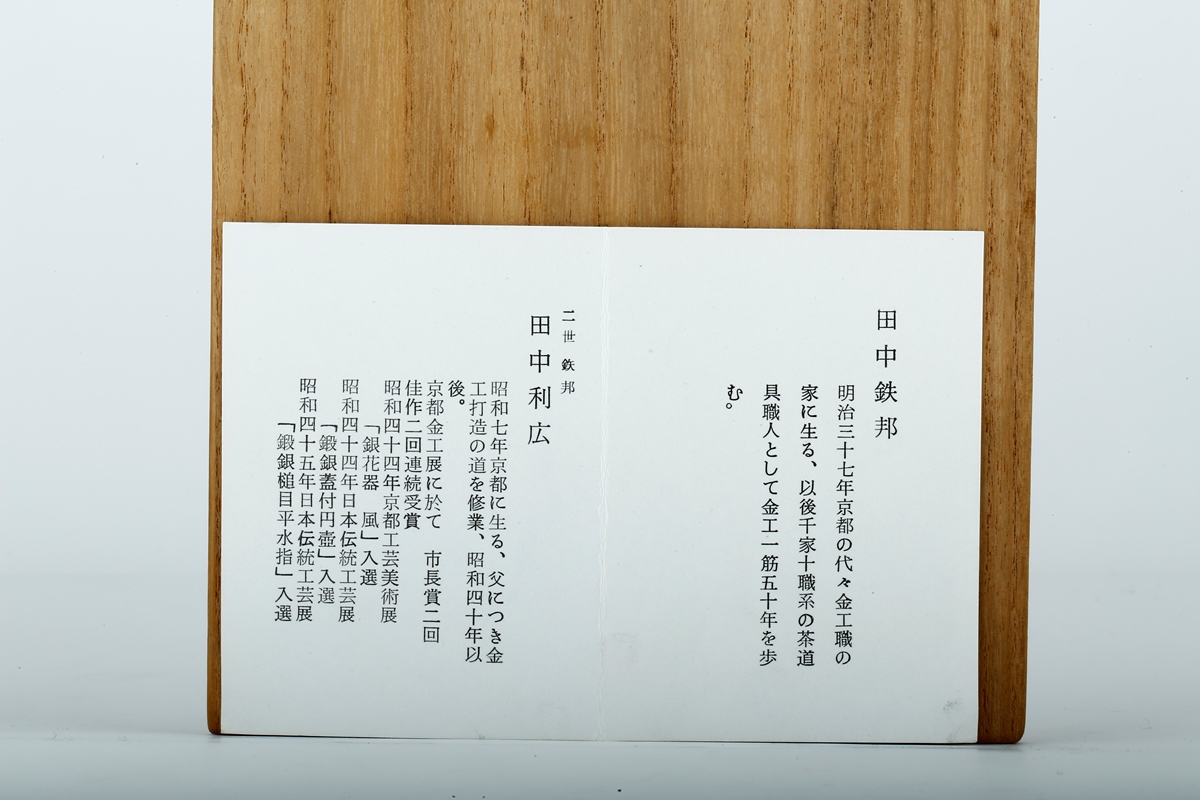 田中鉄邦
明治三十七年京都の代々金工職の
家に生る、以後千家十職系の茶道
具職人として金工一筋五十年を歩
む。
二世鉄邦
田中利広
昭和七年京都に生る、父につき金
工打造の道を修業、昭和四十年以
後。
京都金工展に於て　市長賞二回
佳作二回連続受賞
昭和四十四年京都工芸美術展
「銀花器　風」入選
昭和四十四年日本伝統工芸展
「鍛銀蓋付円壺」入選
昭和四十五年日本伝統工芸展
「鍛銀槌目平水指」入選